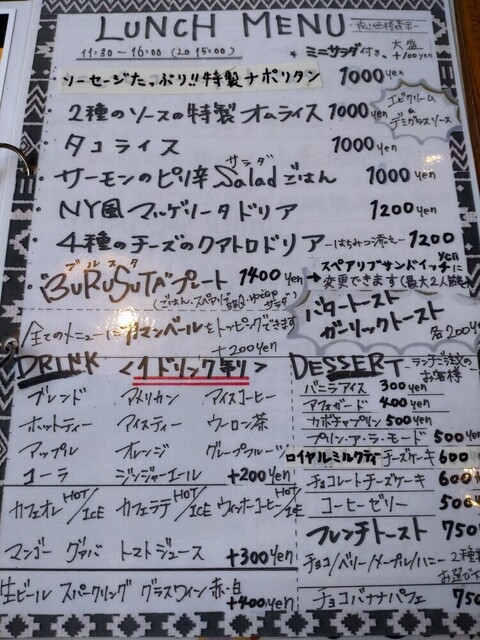 LUNCH MENU -税込価格表示-
11:30-16:00 (LO 15:00)
* ミニサラダ付き、大盛+100yen
ソーセージたっぷり!!特製ナポリタン 1000yen
・2種のソースの特製オムライス 1000yen
エビクリーム & デミグラスソース
・タコライス 1000yen
・サーモンのピリ辛Saladごはん 1000yen
サラダ
・NY風マルゲリータドリア 1200yen
・4種のチーズのクアトロドリア -はちみつ添え- 1200yen
ブルスタ
・"BURUSUTA"プレート 1400yen
→スペアリブサンドイッチに変更できます(最大2人前
全てのメニューにカマンベールをトッピングできます
+200yen
バタートースト
ガーリックトースト
各200yen
DRINK <1ドリンク引り>
ブレンド アメリカン アイスコーヒー
ホットティー アイスティー ウーロン茶
アップル オレンジ グレープフルーツ
コーラ ジンジャーエール +200yen
カフェオレHOT/ICE カフェラテHOT/ICE ウィンナーコーヒーHOT/ICE
マンゴー グァバ トマトジュース +300yen
生ビール スパークリング グラスワイン赤・白
+400yen
DESSERT -ランチご注文のお客様
バニラアイス 300yen
アフォガード 400yen
カボチャプリン 500yen
プリン・ア・ラ・モード 500yen
ロイヤルミルクティチーズケーキ 600
チョコレートチーズケーキ 600
コーヒーゼリー 500
フレンチトースト 750
チョコ/ベリー/メープル/ハニー 2種
お選び
チョコバナナパフェ 750